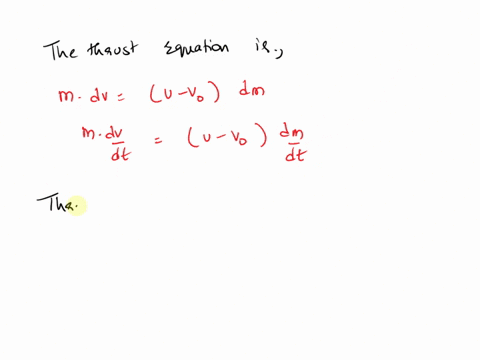 The thrust Equation is,
m. dv = (u - v₀) dm
m. dv/dt = (u - v₀) dm/dt
Tha